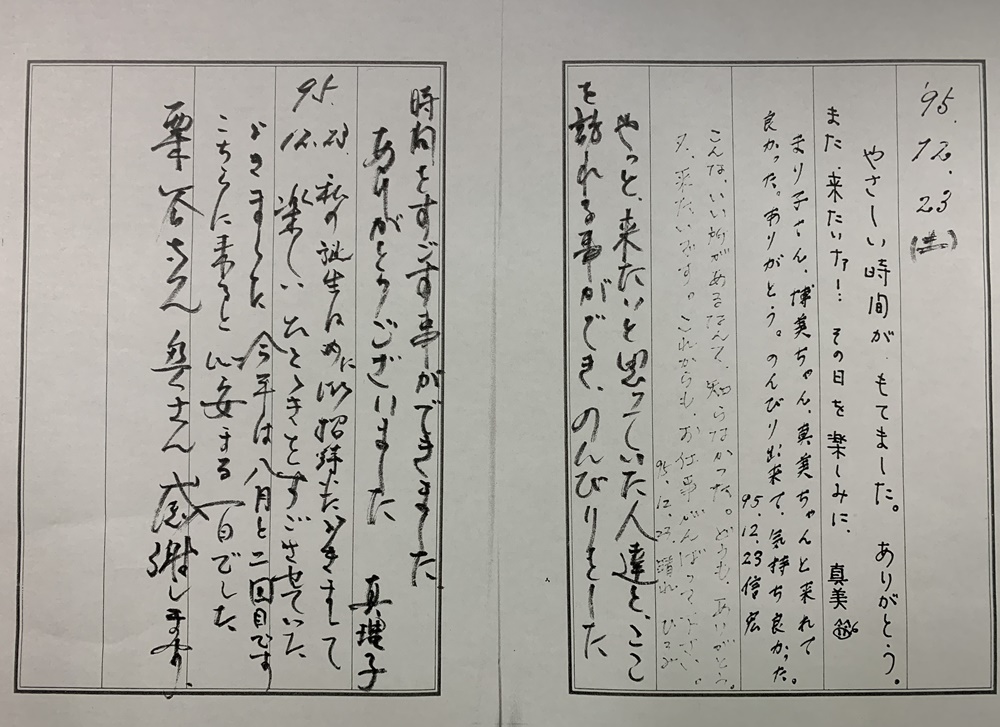 '95. 12. 23
やさしい時間が もてました。 ありがとう。
また 来たいナァー… その日を楽しみに、 真美
まり子さん、博美ちゃん、真美ちゃんと来れて
良かった。ありがとう。のんびり出来て、気持ち良かった。
95.12.23 信宏
こんな、いい所があるなんて、知らなかった。どうも、ありがとう。
又、来たいです。これからも、お仕事がんばって下さい。
95.12.23. 晴れ ひろみ
やっと、来たいと思っていた人達と、ここ
を訪れる事ができ、のんびりとした
時間をすごす事ができました
ありがとうございました 真理子
95. 12. 23
私の誕生日めに御招待たゞきまして
楽しいひとゝきとすごさせていた
ゞきました 今年は八月と二回目です
こちらに来ると 心安まる一日でした
栗谷さん 奥さん 感謝します